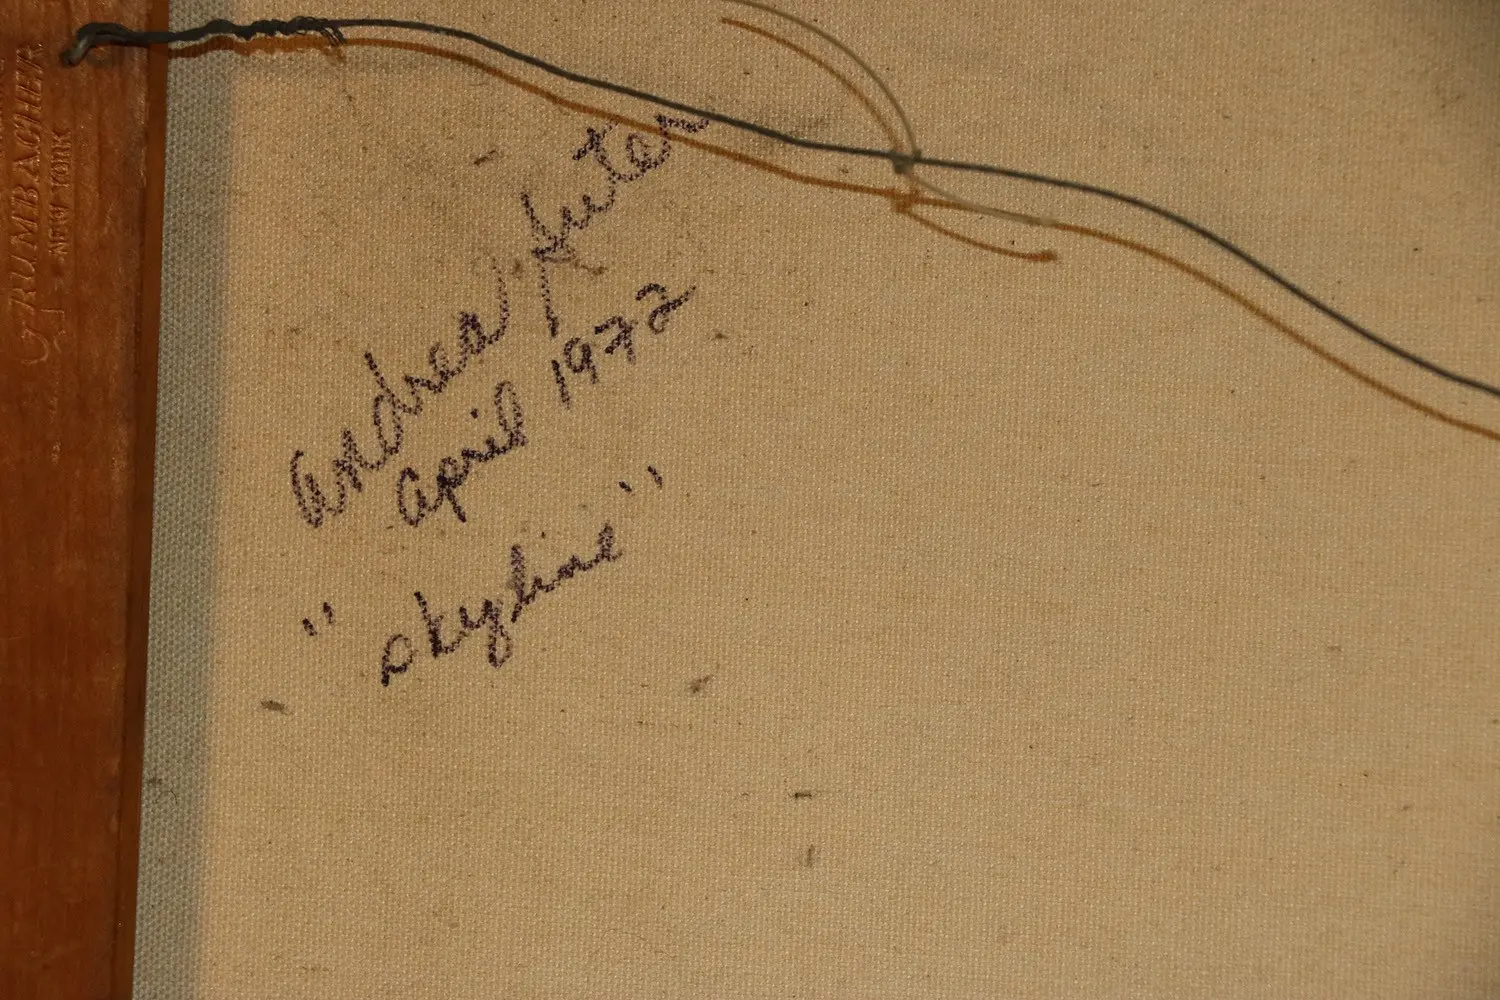 GRUMBACHER
NEW YORK
andrea
april 1972
"skyline"